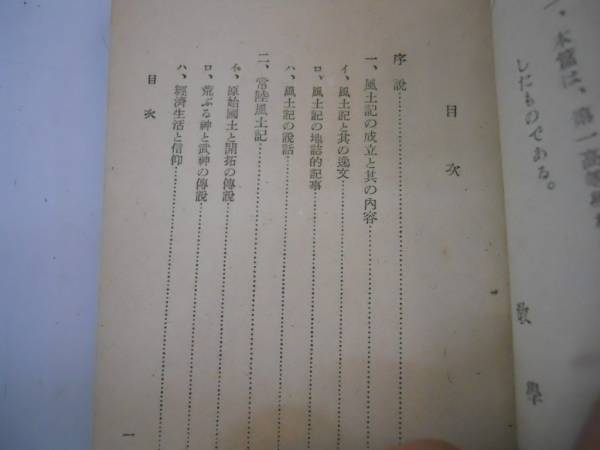 一、本書は、第一高等
したものである。
敎學
目次
序說
一、風土記の成立と其の內容
イ、風土記と其の逸文
ロ、風土記の地誌的記事
ハ、風土記の說話
二、常陸風土記
イ、原始國土と開拓の傳說
ロ、荒ぶる神と武神の傳說
ハ、經濟生活と信仰
目次
一